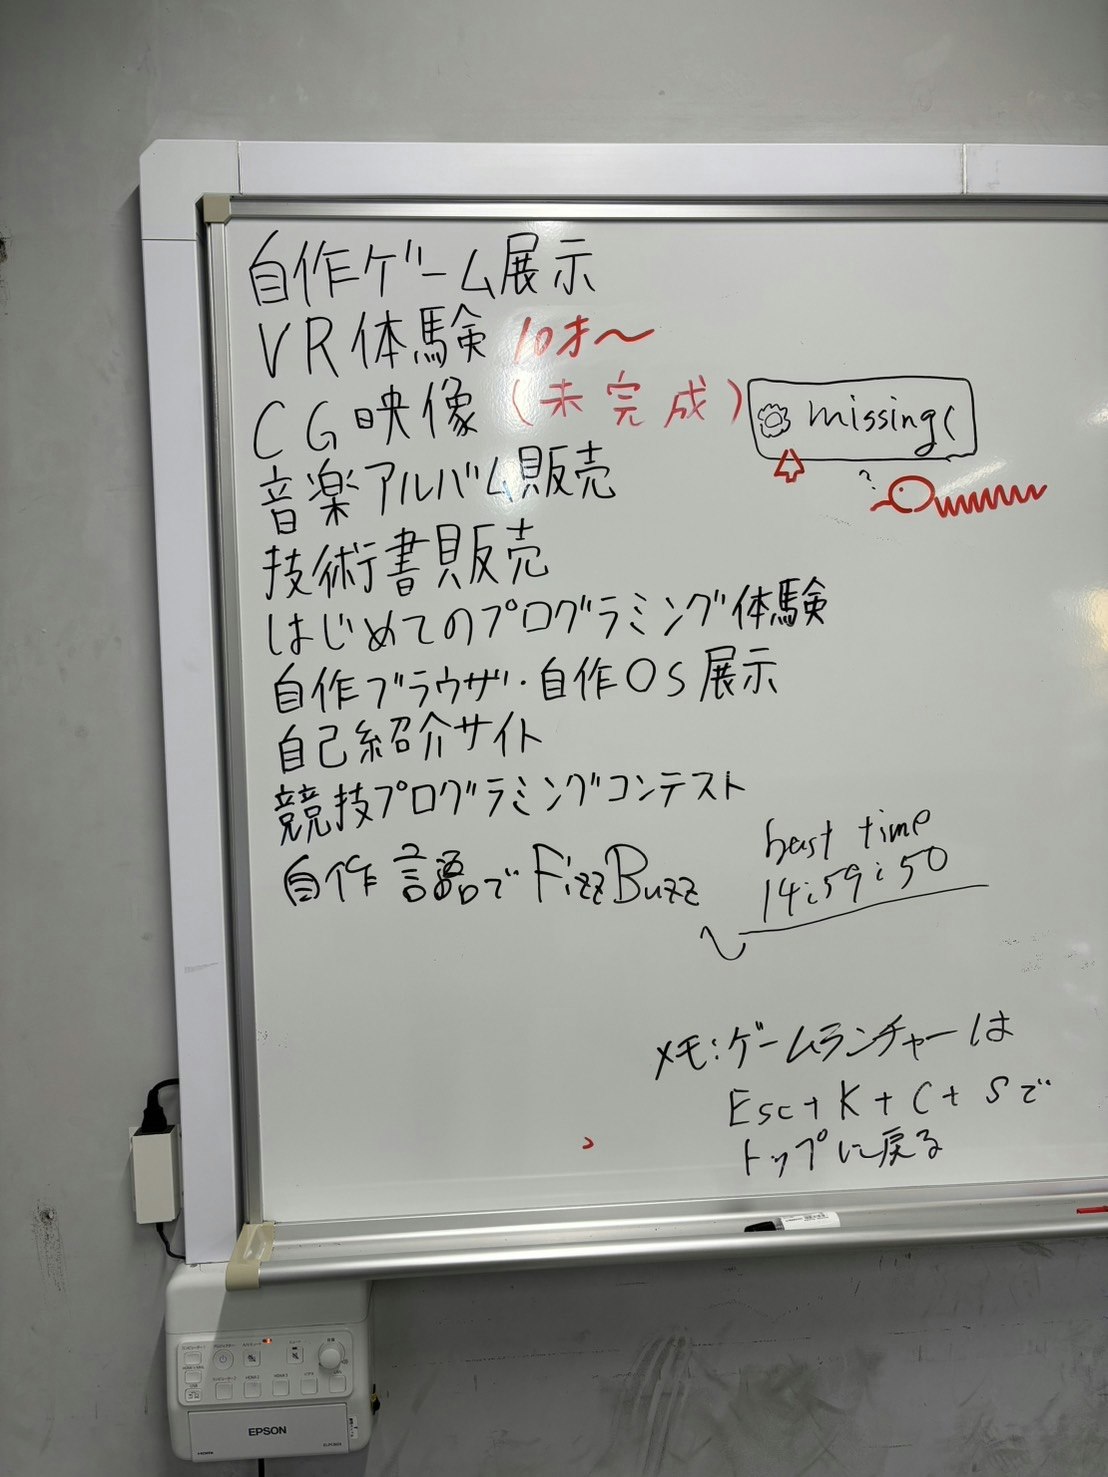 自作ゲーム展示
VR体験 10才～
CG映像 (未完成)
missing(
?
音楽アルバム販売
技術書販売
はじめてのプログラミング体験
自作ブラウザ・自作OS展示
自己紹介サイト
競技プログラミングコンテスト
自作言語でFizzBuzz
best time
14:59:50
メモ:ゲームランチャーは
Esc+K+C+Sで
トップに戻る
EPSON